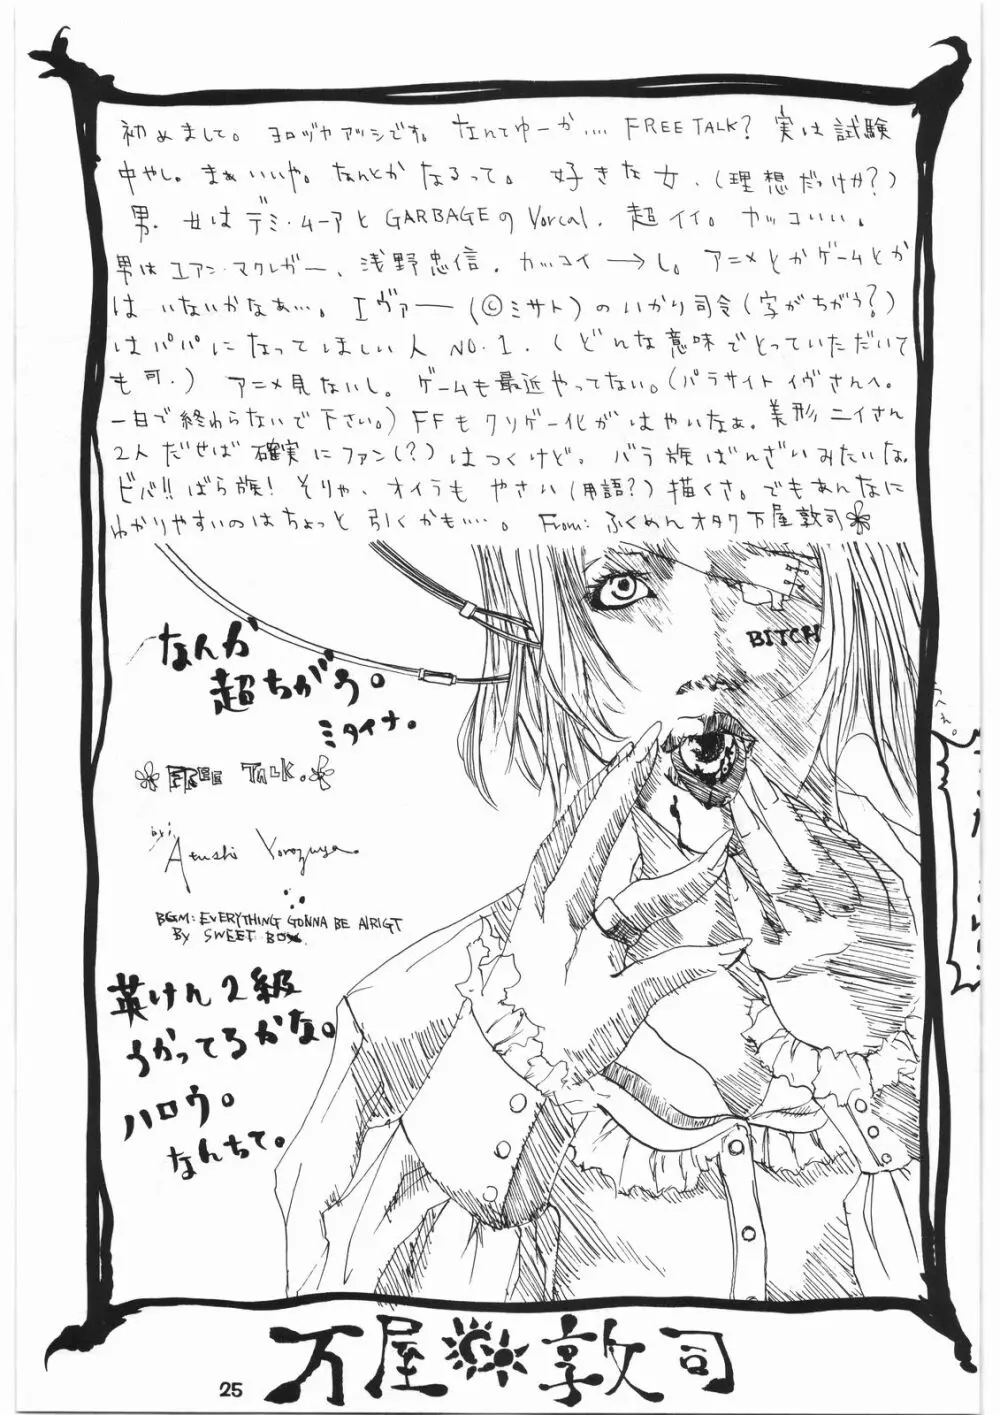 初めまして。ヨロヅヤアツシです。なんてゆーか.... FREE TALK? 実は試験
中やし。まぁいいや。なんとかなるって。 好きな女、(理想だっけか?)
男、女はデミ・ムーアとGARBAGEのVorcal. 超イイ。カッコいい。
男はユアン・マクレガー、浅野忠信。カッコイーし。アニメとかゲームとか
はいないかなぁ…。エヴァー(©ミサト)のいかり司令(字がちがう?)
はパパになってほしい人 NO.1.(どんな意味でとっていただいて
も可.) アニメ見ないし。ゲームも最近やってない。(パラサイトイヴさんへ。
一日で終わらないで下さい。)FFもクソゲー化がはやいなぁ。美形ニイさん
2人だせば確実にファン(?)はつくけど。バラ族ばんざいみたいな。
ビバ!!ばら族!そりゃ、オイラもやさい(用語?)描くさ。でもあんなに
わかりやすいのはちょっと引くかも....。From: ふくめんオタク万屋敦司
BITCH
なんか
超ちがう。
ミタイナ。
FREE TALK.
Atushi Yorozuya.
BGM: EVERYTHING GONNA BE ALRIGT
BY SWEET BOX.
英けん2級
うかってるかな。
ハロウ。
なんちて。
万屋敦司
25